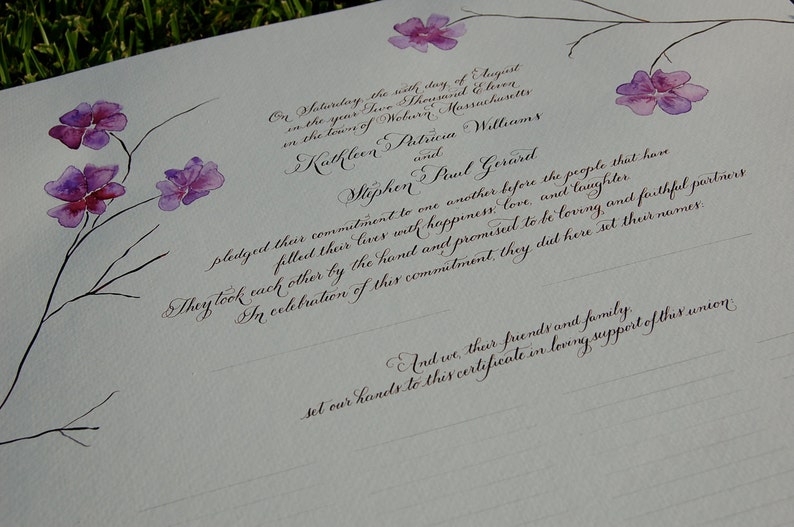 On Saturday, the sixth day of August
in the year Two Thousand Eleven
in the town of Woburn, Massachusetts
Kathleen Patricia Williams
and
Stephen Paul Gerard
pledged their commitment to one another before the people that have
filled their lives with happiness, love, and laughter.
They took each other by the hand and promised to be loving and faithful partners
In celebration of this commitment, they did here set their names:
And we, their friends and family,
set our hands to this certificate in loving support of this union: